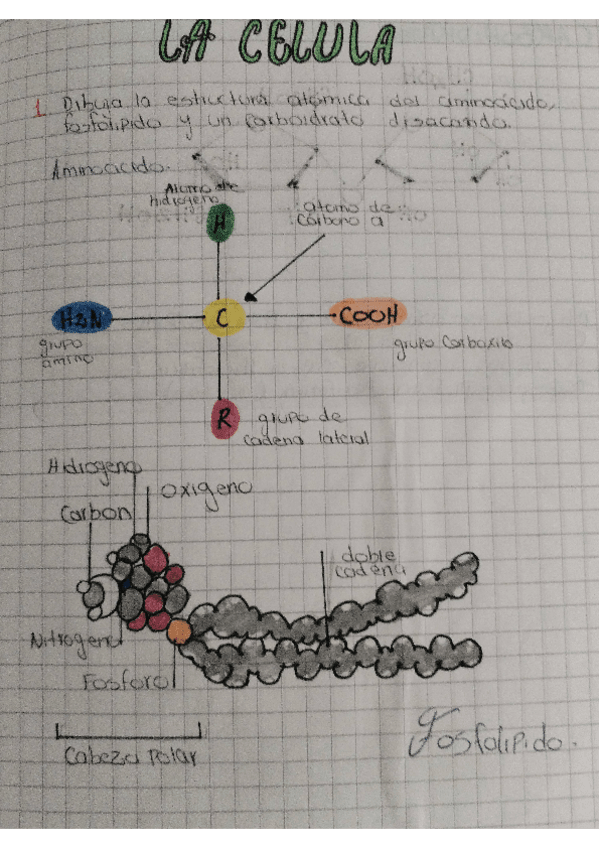 LA CELULA
1 Dibuja la estructura atómica del aminoácido,
fosfolipido y un carboidrato disacarido.
Aminoácido.
Atomo de
hidrogeno
atomo de
carbono a
H
H2N
C
COOH
grupo
amino
grupo Carboxilo
R
grupo de
cadena lateral
Hidrogeno
oxigeno
Carbon
doble
cadena
Nitrogeno
Fosforo
Cabeza polar
Fosfolipido.